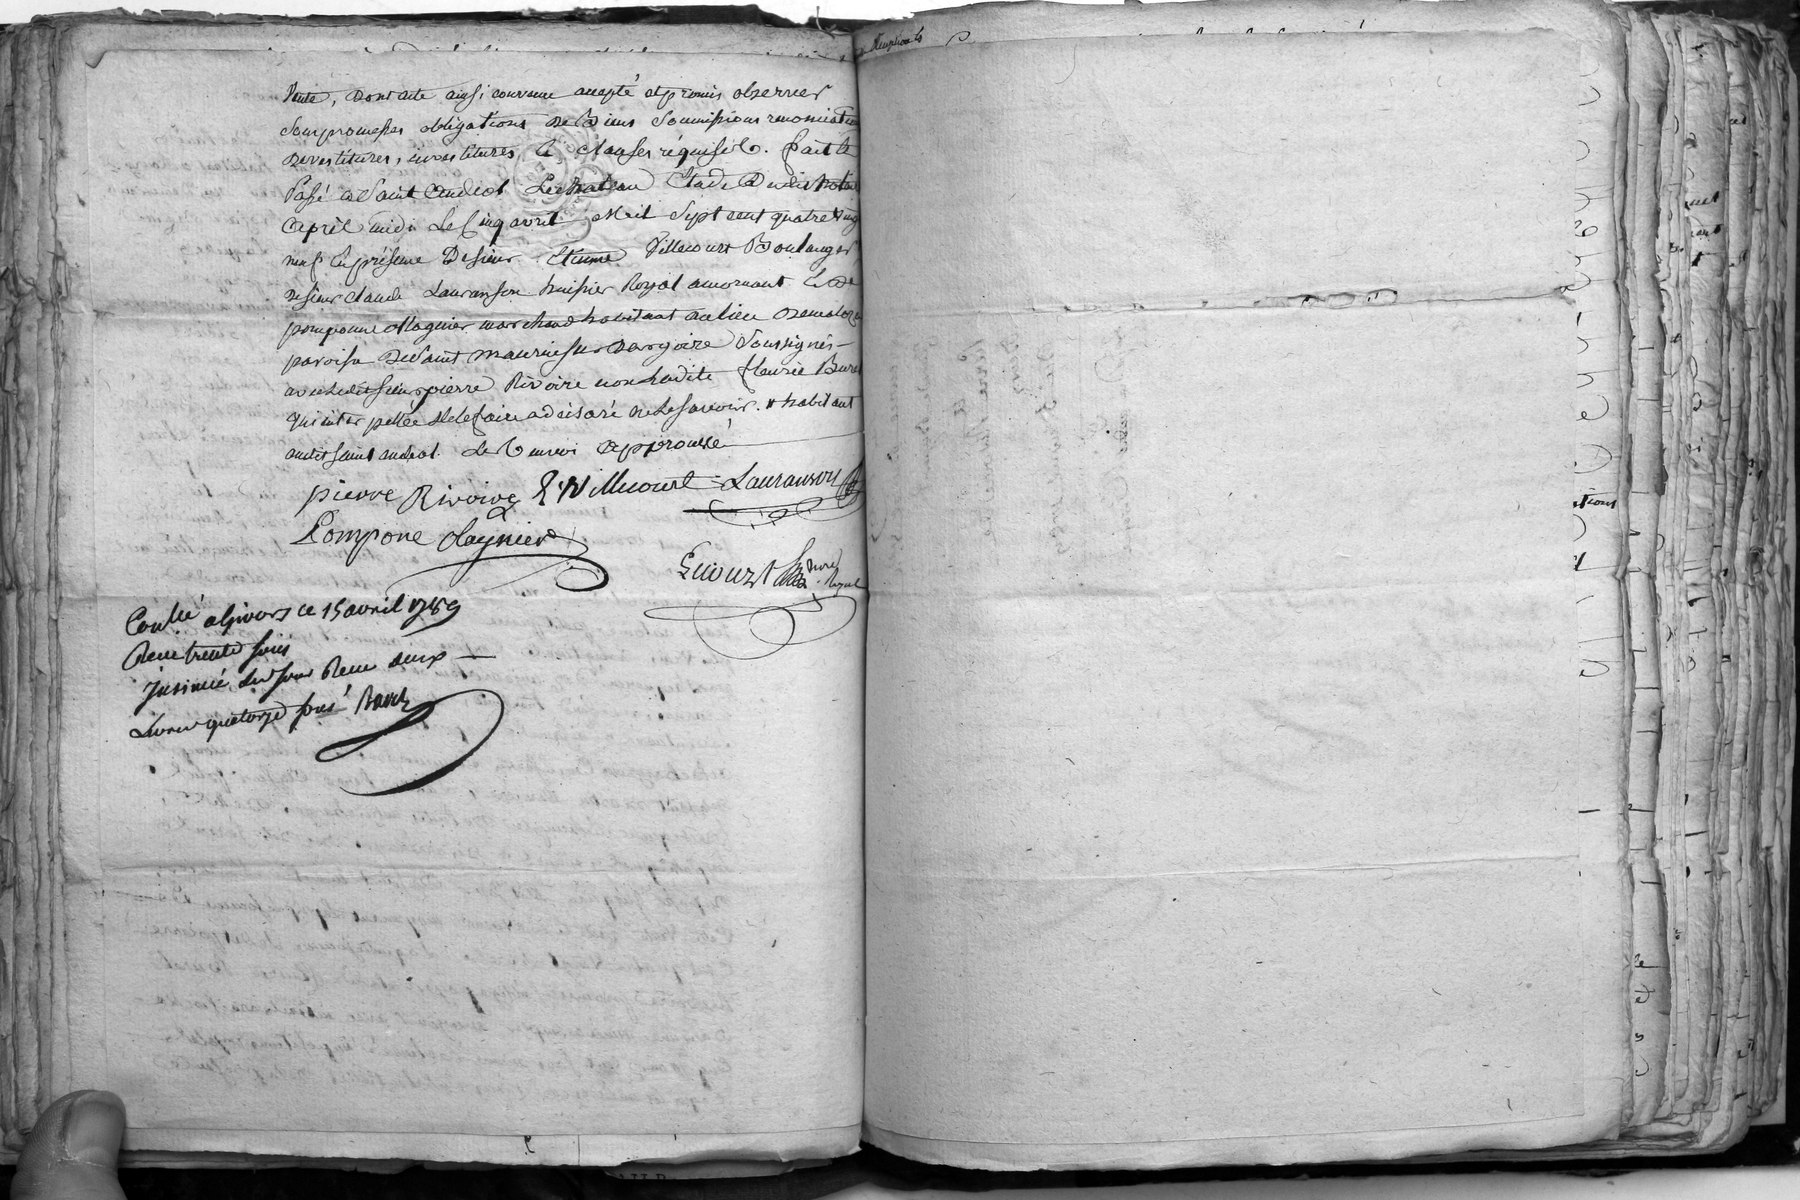 vente, dont acte ainsi convenu accepté et promis observer
Sous promesses obligations de Biens Soumissions renonciation
devestitures, investitures & clauses réquises. fait &
Passé a Saint Andéol Le chateau Etude du dit notaire
après midi Le Cinq avril Mil Sept cent quatre vingt
neuf En présence De sieur Etienne Villecourt Boulanger
de sieur claude Lauranson huissier Royal a mornant & de
pomponne Ollagnier marchand habitant au lieu
paroisse de Saint maurice sur dargoire Soussignés
avec ledit sieur pierre Rivoire non ladite fleurie Buret
qui interpellée de le faire a déclaré ne le savoir. # habitant
audit saint andéol. Le Renvoi approuvé
pierre Rivoire E. Villecourt Lauranson
Pompone Olagnier
nore Royal
Conllé a Givors ce 15 avril 1789
Reçu trente sous
Insinué led jour Reçu deux
Livres quatorze sous